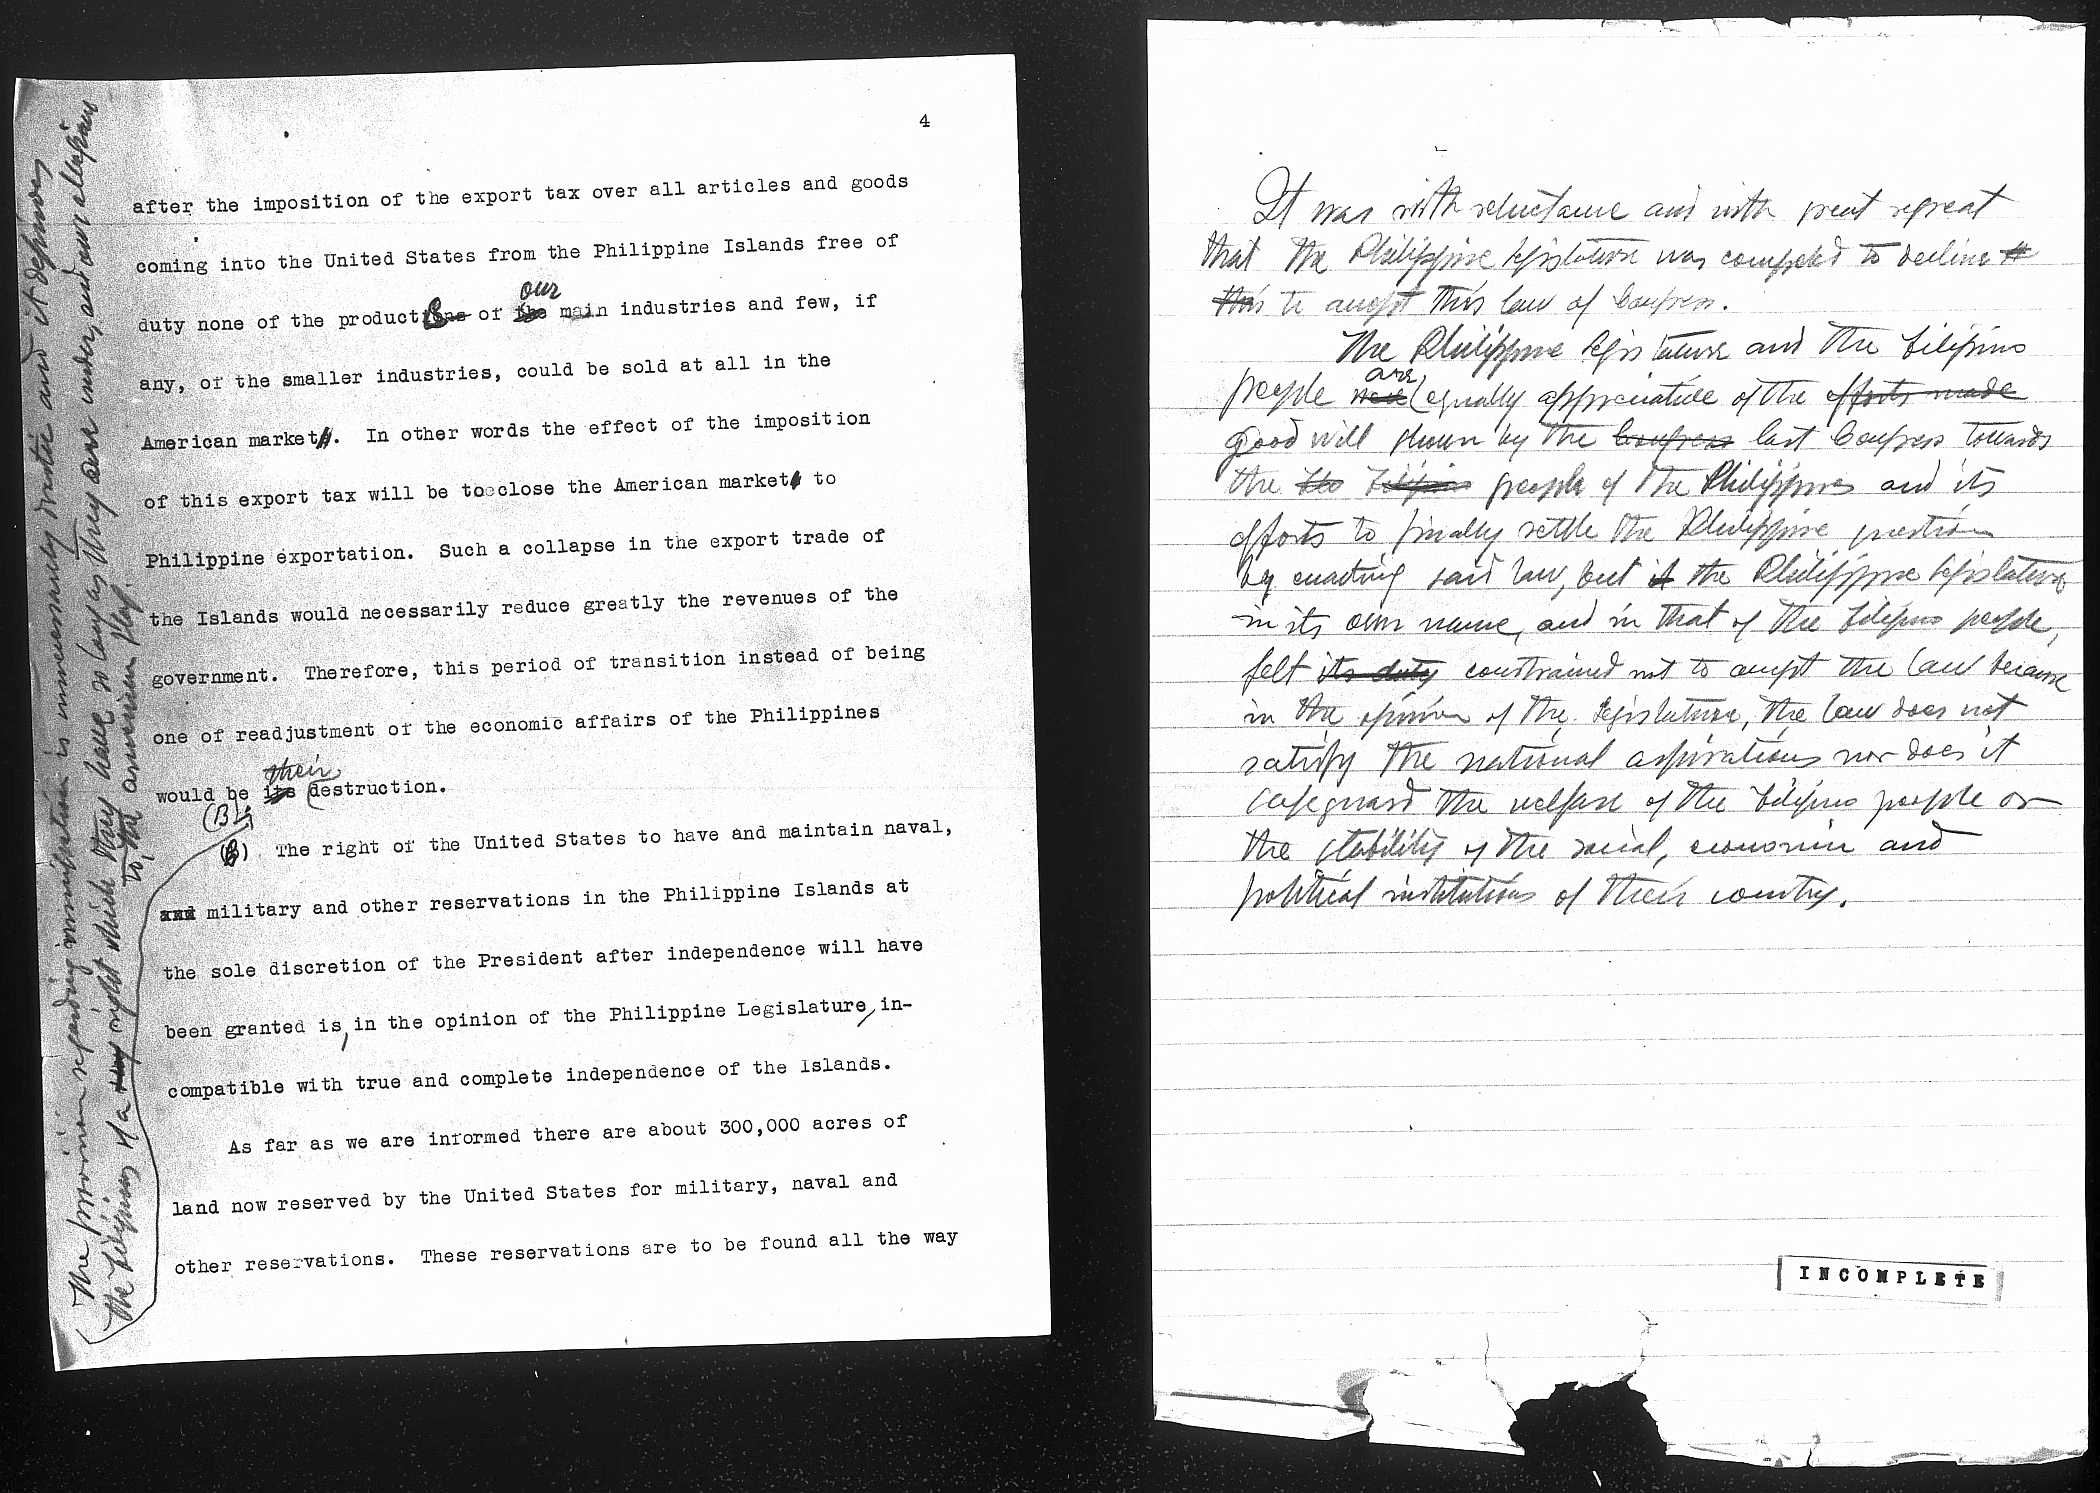 4
after the imposition of the export tax over all articles and goods
coming into the United States from the Philippine Islands free of
our
duty none of the productions of the main industries and few, if
any, of the smaller industries, could be sold at all in the
American market. In other words the effect of the imposition
of this export tax will be to close the American market to
Philippine exportation. Such a collapse in the export trade of
the Islands would necessarily reduce greatly the revenues of the
government. Therefore, this period of transition instead of being
one of readjustment of the economic affairs of the Philippines
their
would be its destruction.
(B)
(B) The right of the United States to have and maintain naval,
and military and other reservations in the Philippine Islands at
the sole discretion of the President after independence will have
been granted is, in the opinion of the Philippine Legislature, in-
compatible with true and complete independence of the Islands.
As far as we are informed there are about 300,000 acres of
land now reserved by the United States for military, naval and
other reservations. These reservations are to be found all the way
The provision regarding immigration is unnecessarily drastic and it deprives
the Filipinos of a right which they have so long as they are under, and owe allegiance
to, the American flag.
It was with reluctance and with great regreat
that the Philippine Legislature was compeled to decline
this to accept this law of Congress.
The Philippine Legislature and the Filipino
are
people were equally appreciative of the efforts made
good will shown by the Congress last Congress towards
the the Filipino people of the Philippines and its
efforts to finally settle the Philippine question
by enacting said law, but it the Philippine Legislature
in its own name, and in that of the Filipino people,
felt its duty constrained not to accept the law because
in the opinion of the Legislature, the law does not
satisfy the national aspirations nor does it
safeguard the welfare of the Filipino people or
the stability of the social, economic and
political institutions of their country.
INCOMPLETE